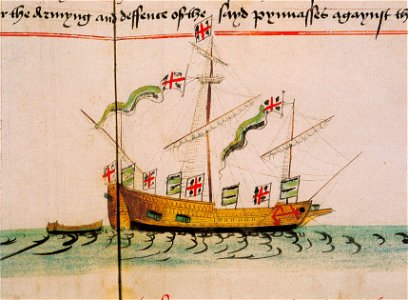 r the Armyng and deffence of the sayd pynnasses agaynst th